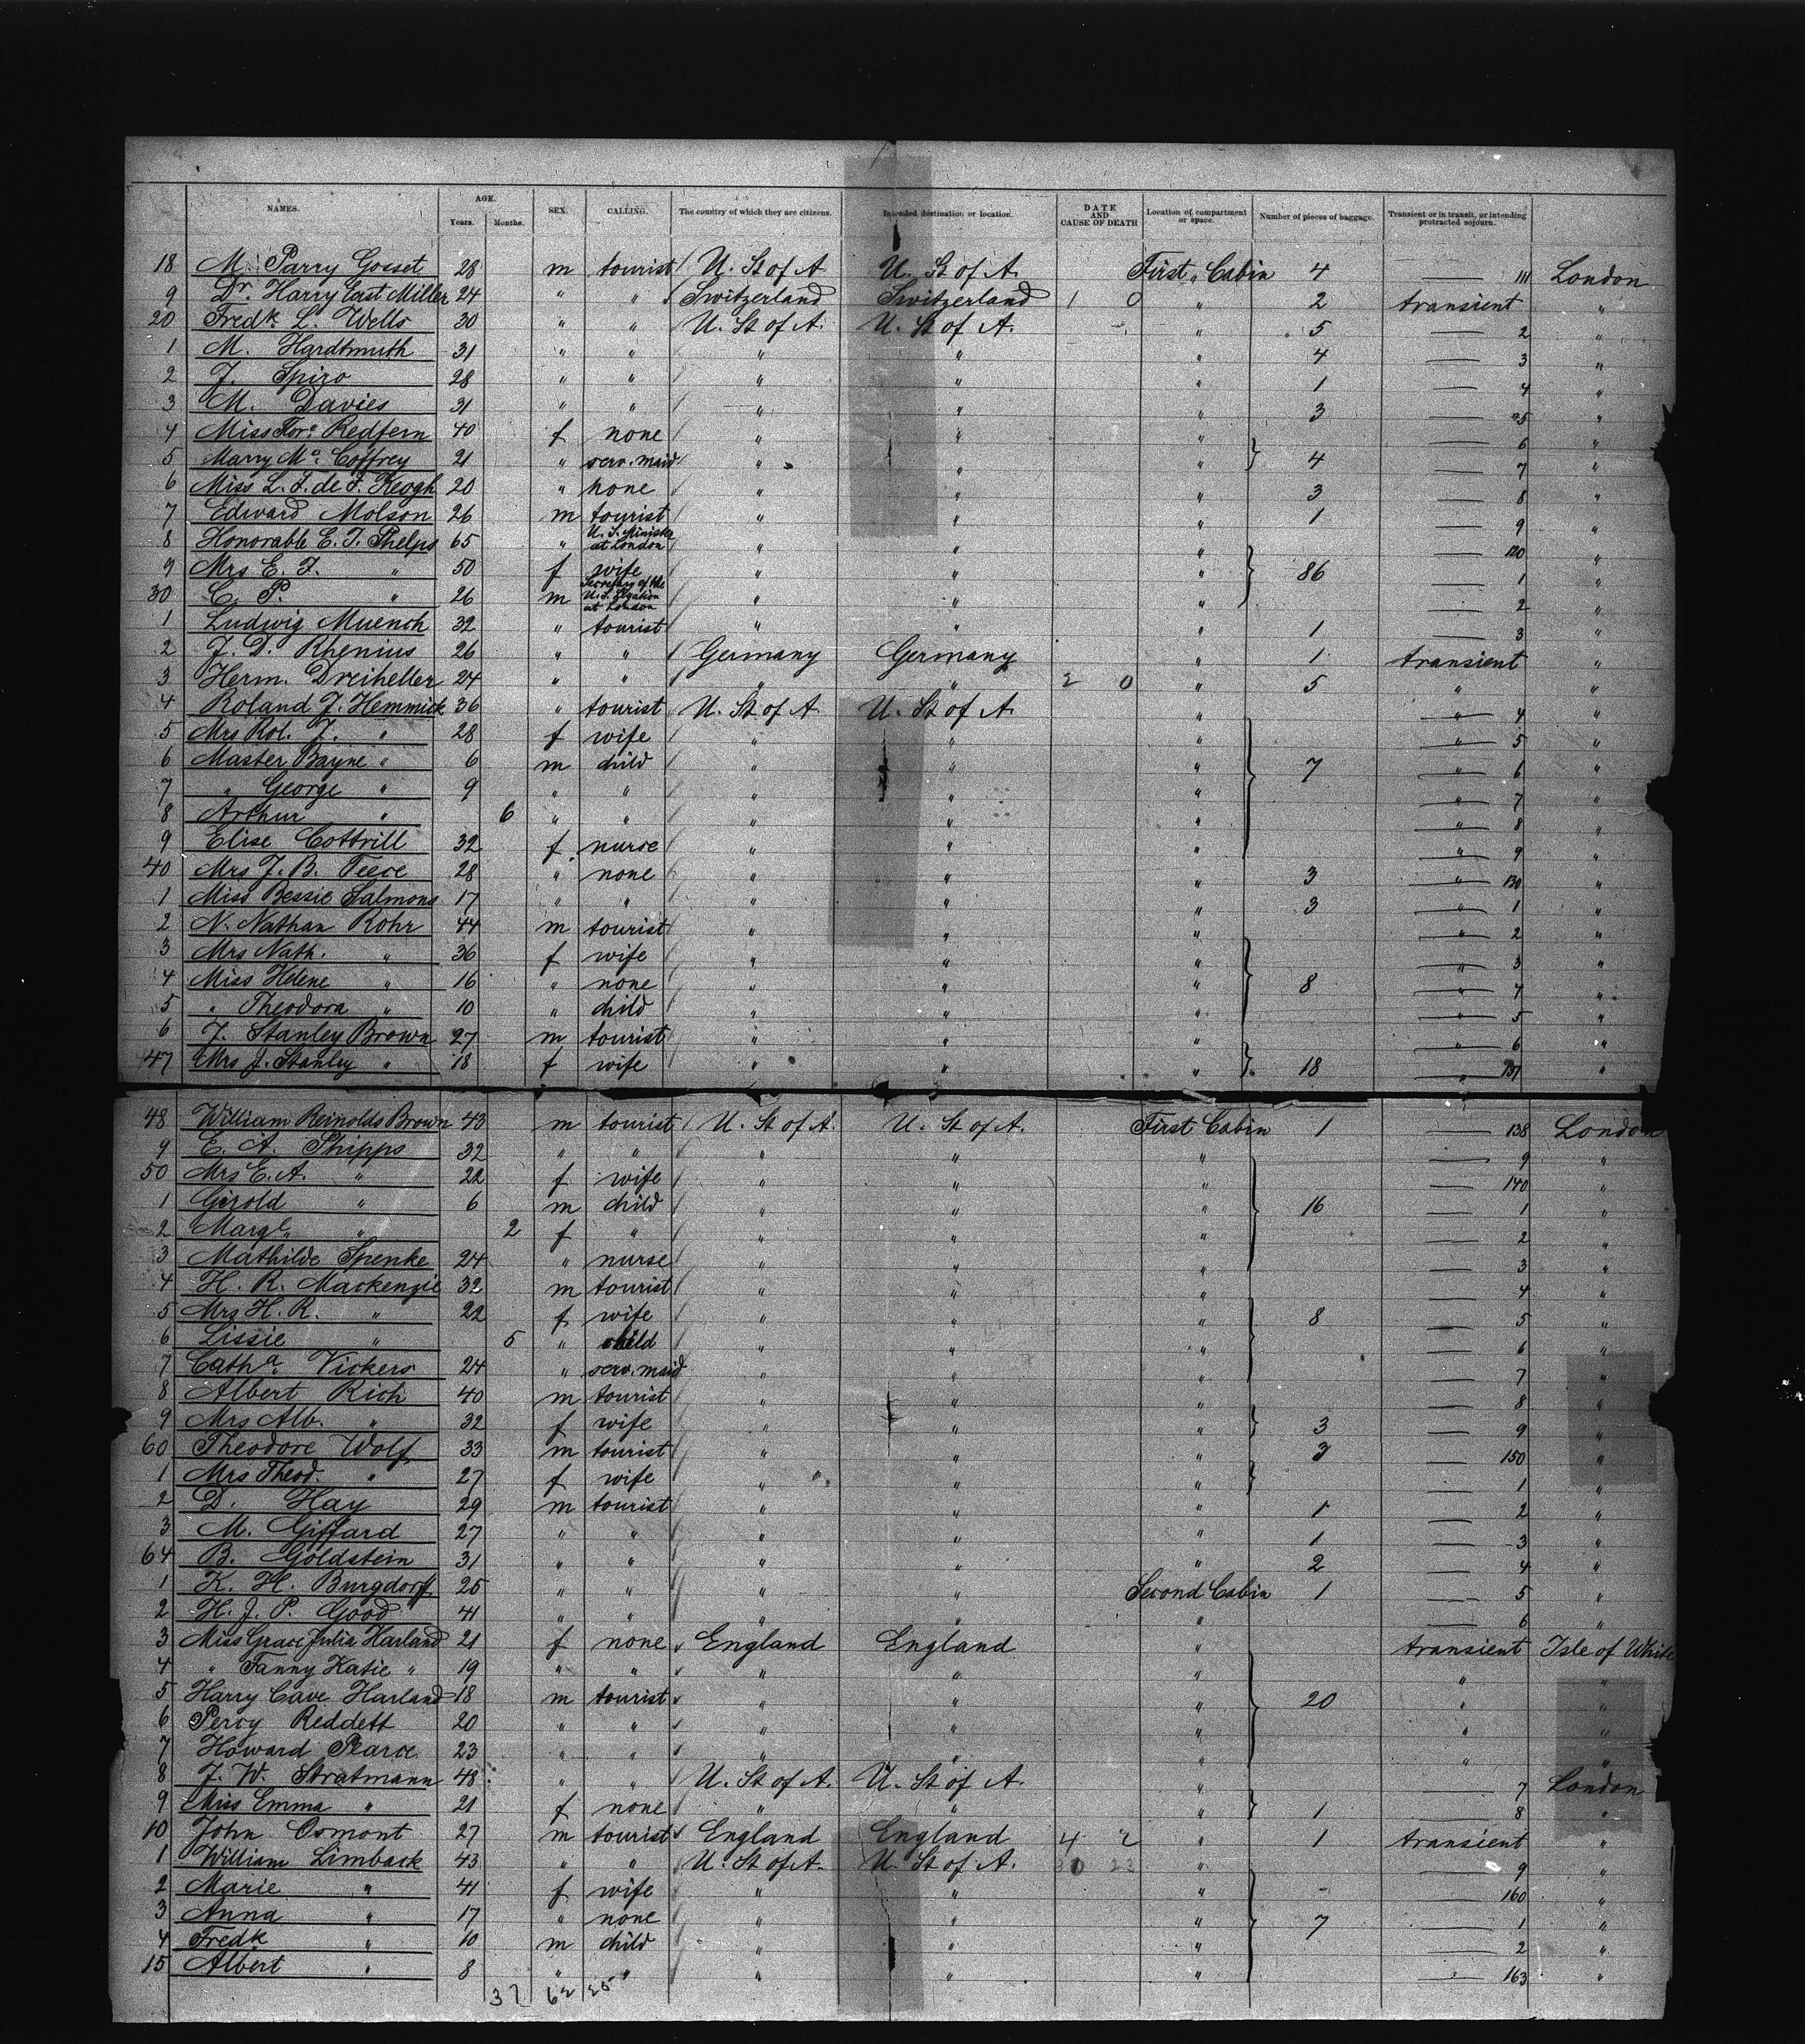 NAMES. AGE. Years. Months. SEX. CALLING. The country of which they are citizens. Intended destination or location. DATE AND CAUSE OF DEATH Location of compartment or space. Number of pieces of baggage. Transient or in transit, or intending protracted sojourn.
18 M. Parry Gosset 28 m tourist U. St of A. U. St of A. First Cabin 4 — 111 London
9 Dr. Harry East Miller 24 " " Switzerland Switzerland 1 0 " 2 transient "
20 Fredk. L. Wells 30 " " U. St of A. U. St of A. " 5 — 2 "
1 M. Hardtmuth 31 " " " " " 4 — 3 "
2 J. Spiro 28 " " " " " 1 — 4 "
3 M. Davies 31 " " " " " 3 — 5 "
4 Miss Flore Redfern 40 f none " " " — 6 "
5 Marry Mc. Coffrey 21 " serv. maid " " " 4 — 7 "
6 Miss L. J. de F. Keogh 20 " none " " " 3 — 8 "
7 Edward Molson 26 m tourist " " " 1 — 9 "
8 Honorable E. J. Phelps 65 " U. S. Minister at London " " " — 120 "
9 Mrs E. J. " 50 f wife " " " 86 — 1 "
30 C. P. " 26 m Secretary of the U. S. Legation at London " " " — 2 "
1 Ludwig Muench 32 " tourist " " " 1 — 3 "
2 J. D. Rhenius 26 " " Germany Germany " 1 transient "
3 Herm. Dreiheller 24 " " " " 2 0 " 5 " "
4 Roland J. Hemmick 36 " tourist U. St of A. U. St of A. " — " — 4 "
5 Mrs Rol. J. " 28 f wife " " " — " — 5 "
6 Master Bayne " 6 m child " " " 7 — " — 6 "
7 " George " 9 " " " " " — " — 7 "
8 Arthur " 6 " " " " " — " — 8 "
9 Elise Cottrill 32 f. nurse " " " — " — 9 "
40 Mrs J. B. Teece 28 " none " " " 3 — " — 130 "
1 Miss Bessie Salmons 17 " " " " " 3 — " — 1 "
2 N. Nathan Rohr 44 m tourist " " " — " — 2 "
3 Mrs Nath. " 36 f wife " " " — " — 3 "
4 Miss Helene " 16 " none " " " 8 — " — 4 "
5 " Theodora " 10 " child " " " — " — 5 "
6 J. Stanley Brown 27 m tourist " " " — " — 6 "
47 Mrs J. Stanley " 18 f wife " " " 18 — " — 137 "
48 William Reinolds Brown 43 m tourist U. St of A. U. St of A. First Cabin 1 — 138 London
9 E. A. Phipps 32 " " " " " — 9 "
50 Mrs E. A. " 22 f wife " " " — 140 "
1 Gerold " 6 m child " " " 16 — 1 "
2 Margt. " 2 f " " " " — 2 "
3 Mathilde Spenke 24 " nurse " " " — 3 "
4 H. R. Mackenzie 32 m tourist " " " — 4 "
5 Mrs H. R. " 22 f wife " " " 8 — 5 "
6 Lissie " 5 " child " " " — 6 "
7 Catha. Vickers 24 " serv. maid " " " — 7 "
8 Albert Rich 40 m tourist " " " — 8 "
9 Mrs Alb. " 32 f wife " " " 3 — 9 "
60 Theodore Wolf 33 m tourist " " " 3 — 150 "
1 Mrs Theod. " 27 f wife " " " — 1 "
2 D. Hay 29 m tourist " " " 1 — 2 "
3 M. Giffard 27 " " " " " 1 — 3 "
64 B. Goldstein 31 " " " " " 2 — 4 "
1 K. H. Burgdorff 25 " " " " Second Cabin 1 — 5 "
2 H. J. P. Good 41 " " " " " — 6 "
3 Miss Grace Julia Harland 21 f none England England " transient Isle of White
4 " Fanny Katie " 19 " " " " " " "
5 Harry Cave Harland 18 m tourist " " " 20 " "
6 Percy Reddett 20 " " " " " " "
7 Howard Pearce 23 " " " " " " "
8 J. W. Stratmann 48 " " U. St of A. U. St of A. " — 7 London
9 Miss Emma " 21 f none " " " 1 — 8 "
10 John Osmont 27 m tourist England England 4 2 " 1 transient "
1 William Limback 43 " " U. St of A. U. St of A. " — 9 "
2 Marie " 41 f wife " " " — 160 "
3 Anna " 17 " none " " " 7 — 1 "
4 Fredk " 10 m child " " " — 2 "
15 Albert " 8 " " " " " — 163 "
37 62 25